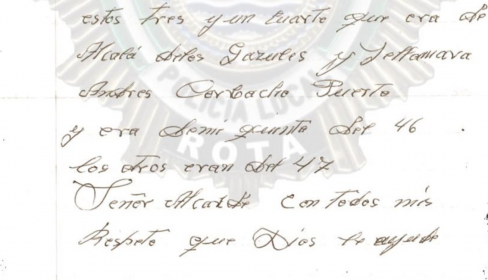 estos tres y un cuarto que era de
Alcalá delos Gazules y sellamava
Andres Corbacho Puerto
y era demi quinta del 46
los otros eran del 47
Señor Alcalde Con todos mis
Respeto que Dios le ayude
POLICIA LOCAL
ROTA